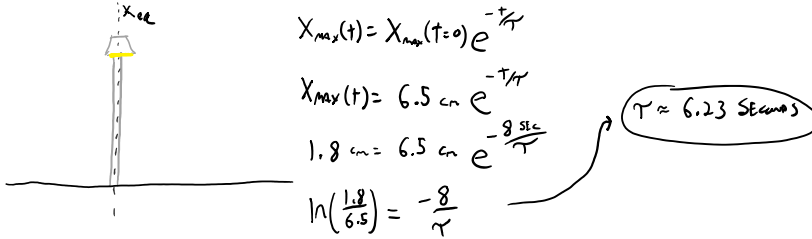 X_eq
X_max(t) = X_max(t=0) e^{-t/τ}
X_max(t) = 6.5 cm e^{-t/τ}
1.8 cm = 6.5 cm e^{-8 sec/τ}
ln(1.8/6.5) = -8/τ
τ ≈ 6.23 seconds